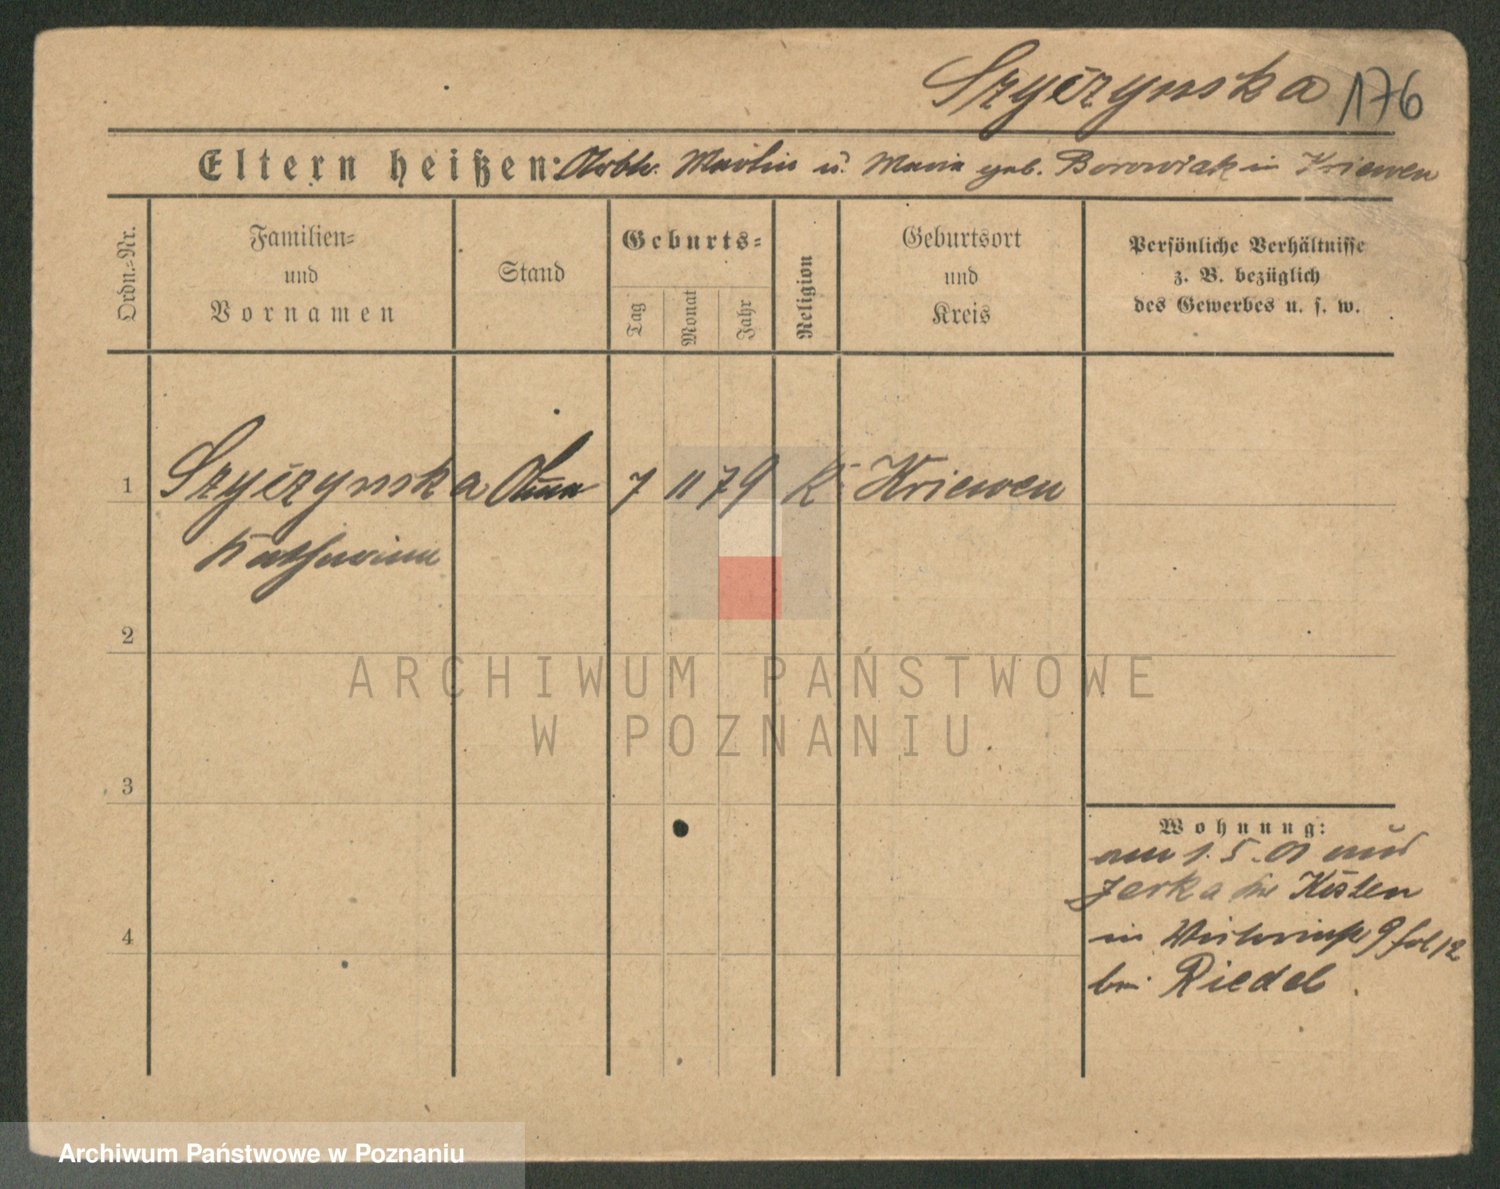 Szyczynska 176
Eltern heißen: Arbtr. Martin u. Maria geb. Borowiak in Kriewen
Ordn.=Nr.
Familien=
und
Vornamen
Stand
Geburts=
Tag
Monat
Jahr
Religion
Geburtsort
und
Kreis
Persönliche Verhältnisse
z. B. bezüglich
des Gewerbes u. s. w.
1 Szyczynska 7 11 79 K Kriewen
Katharina
2
ARCHIWUM PAŃSTWOWE
W POZNANIU
3
Wohnung:
am 1.5.01 aus
Jerka Kr Kosten
in 9 fol 12
bei Riedel
4
Archiwum Państwowe w Poznaniu